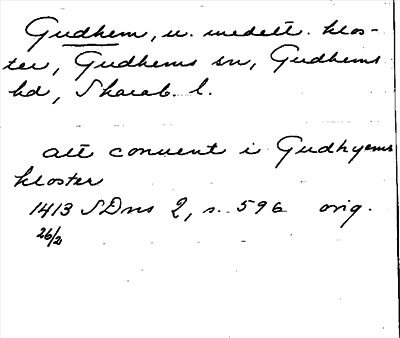 Gudhem, u. medelt. klos-
ter, Gudhems sn, Gudhems
hd, Skarab. l.
alt conuent i Gudhyems
kloster
1413 SDns 2, s. 596 orig.
26/2